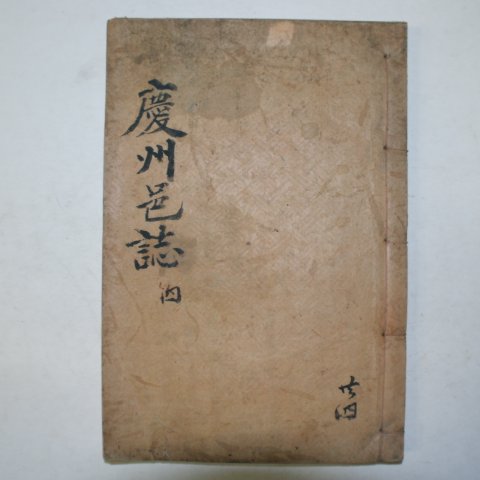 慶州邑誌
四
共四